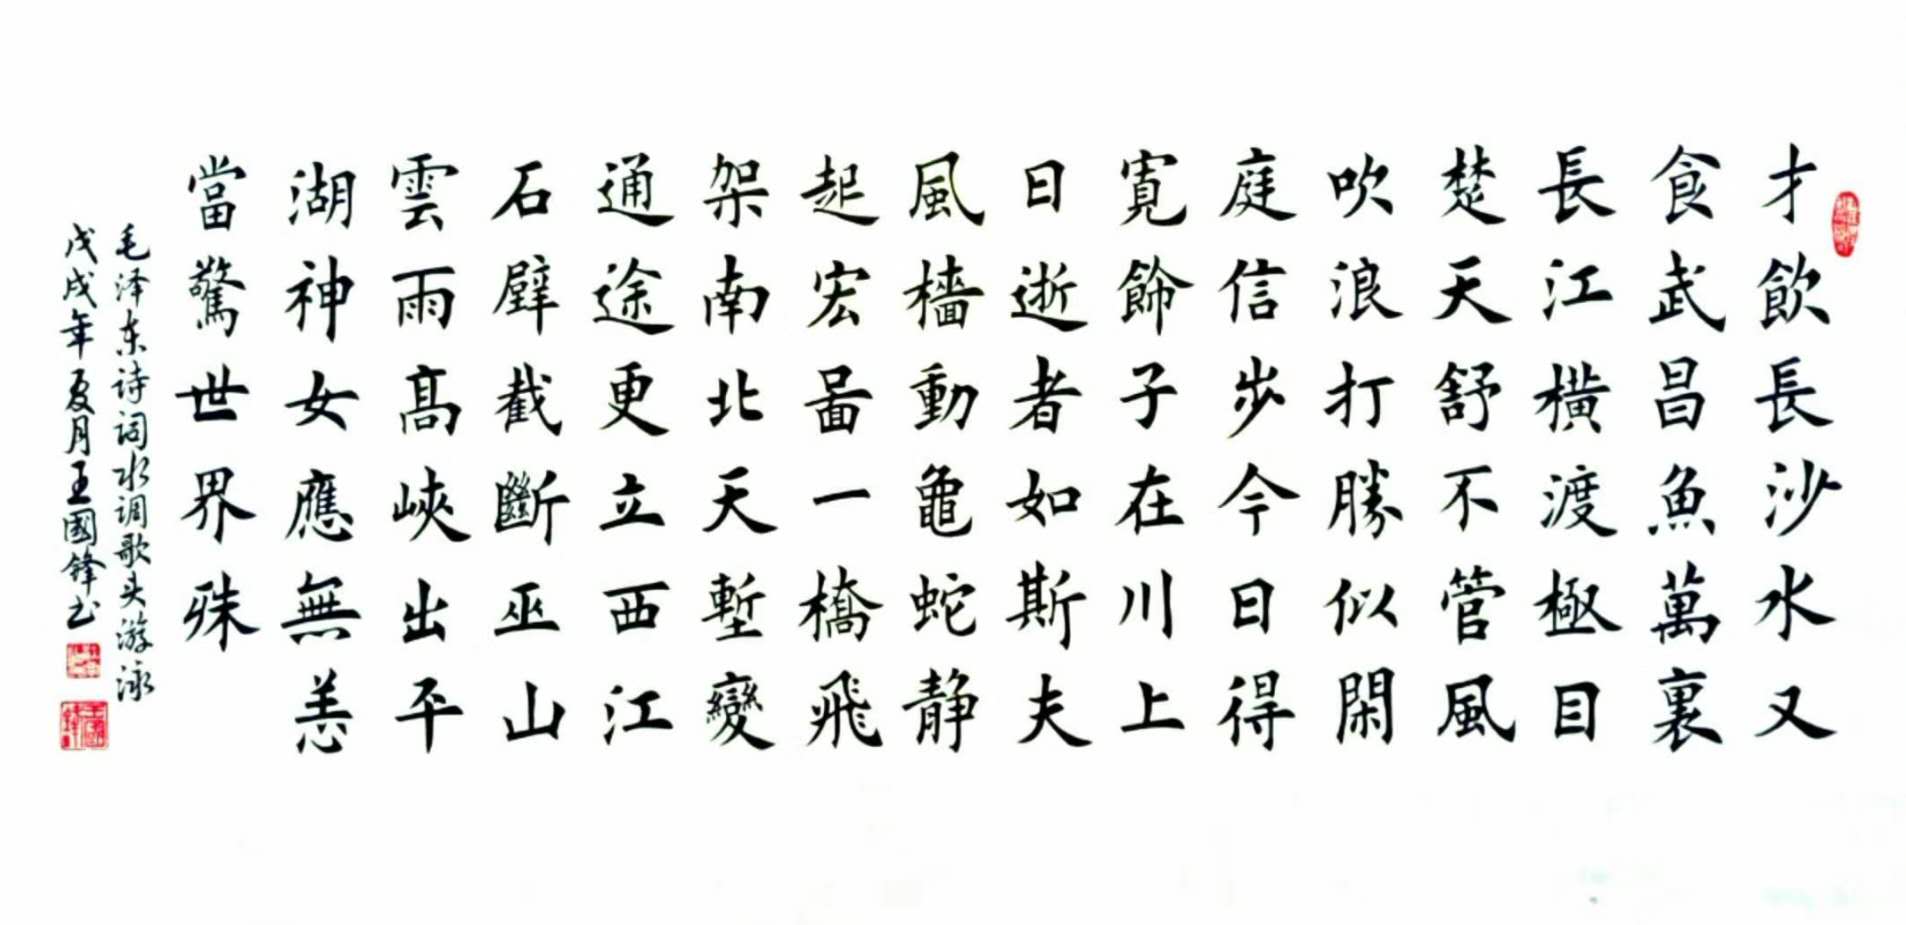 才飲長沙水又
食武昌魚萬裏
長江橫渡極目
楚天舒不管風
吹浪打勝似閑
庭信步今日得
寬餘子在川上
日逝者如斯夫
風檣動龜蛇静
起宏啚一橋飛
架南北天塹變
通途更立西江
石壁截斷巫山
雲雨高峽出平
湖神女應無恙
當驚世界殊
毛泽东诗词水调歌头游泳
戊戌年夏月王國锋书